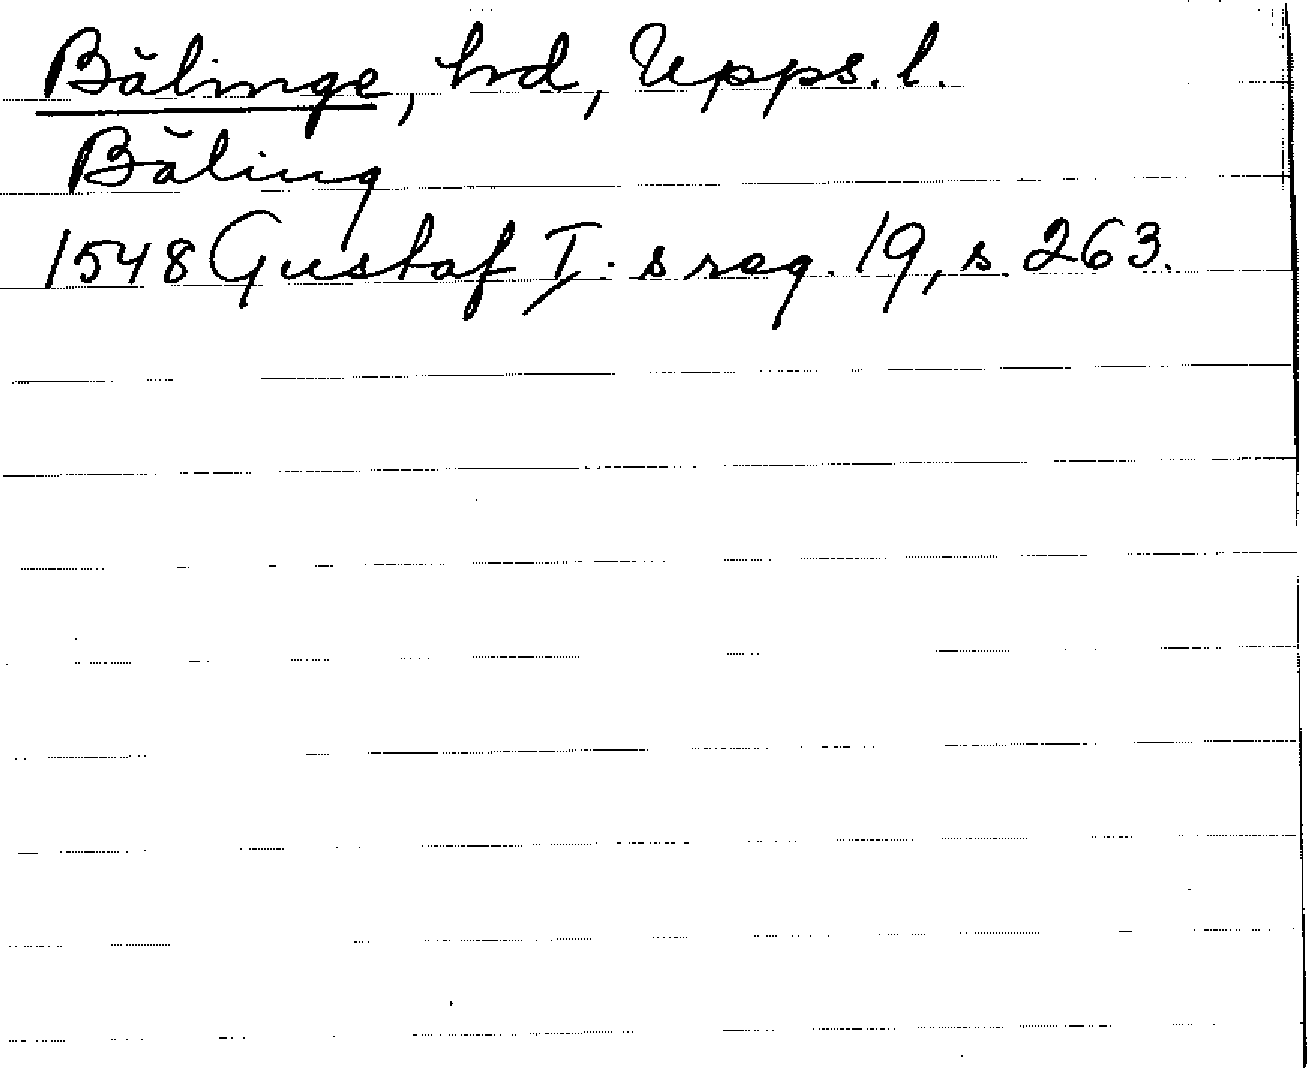 Bälinge, hrd, Upps. l.
Bäling
1548 Gustaf I:s reg. 19, s. 263.